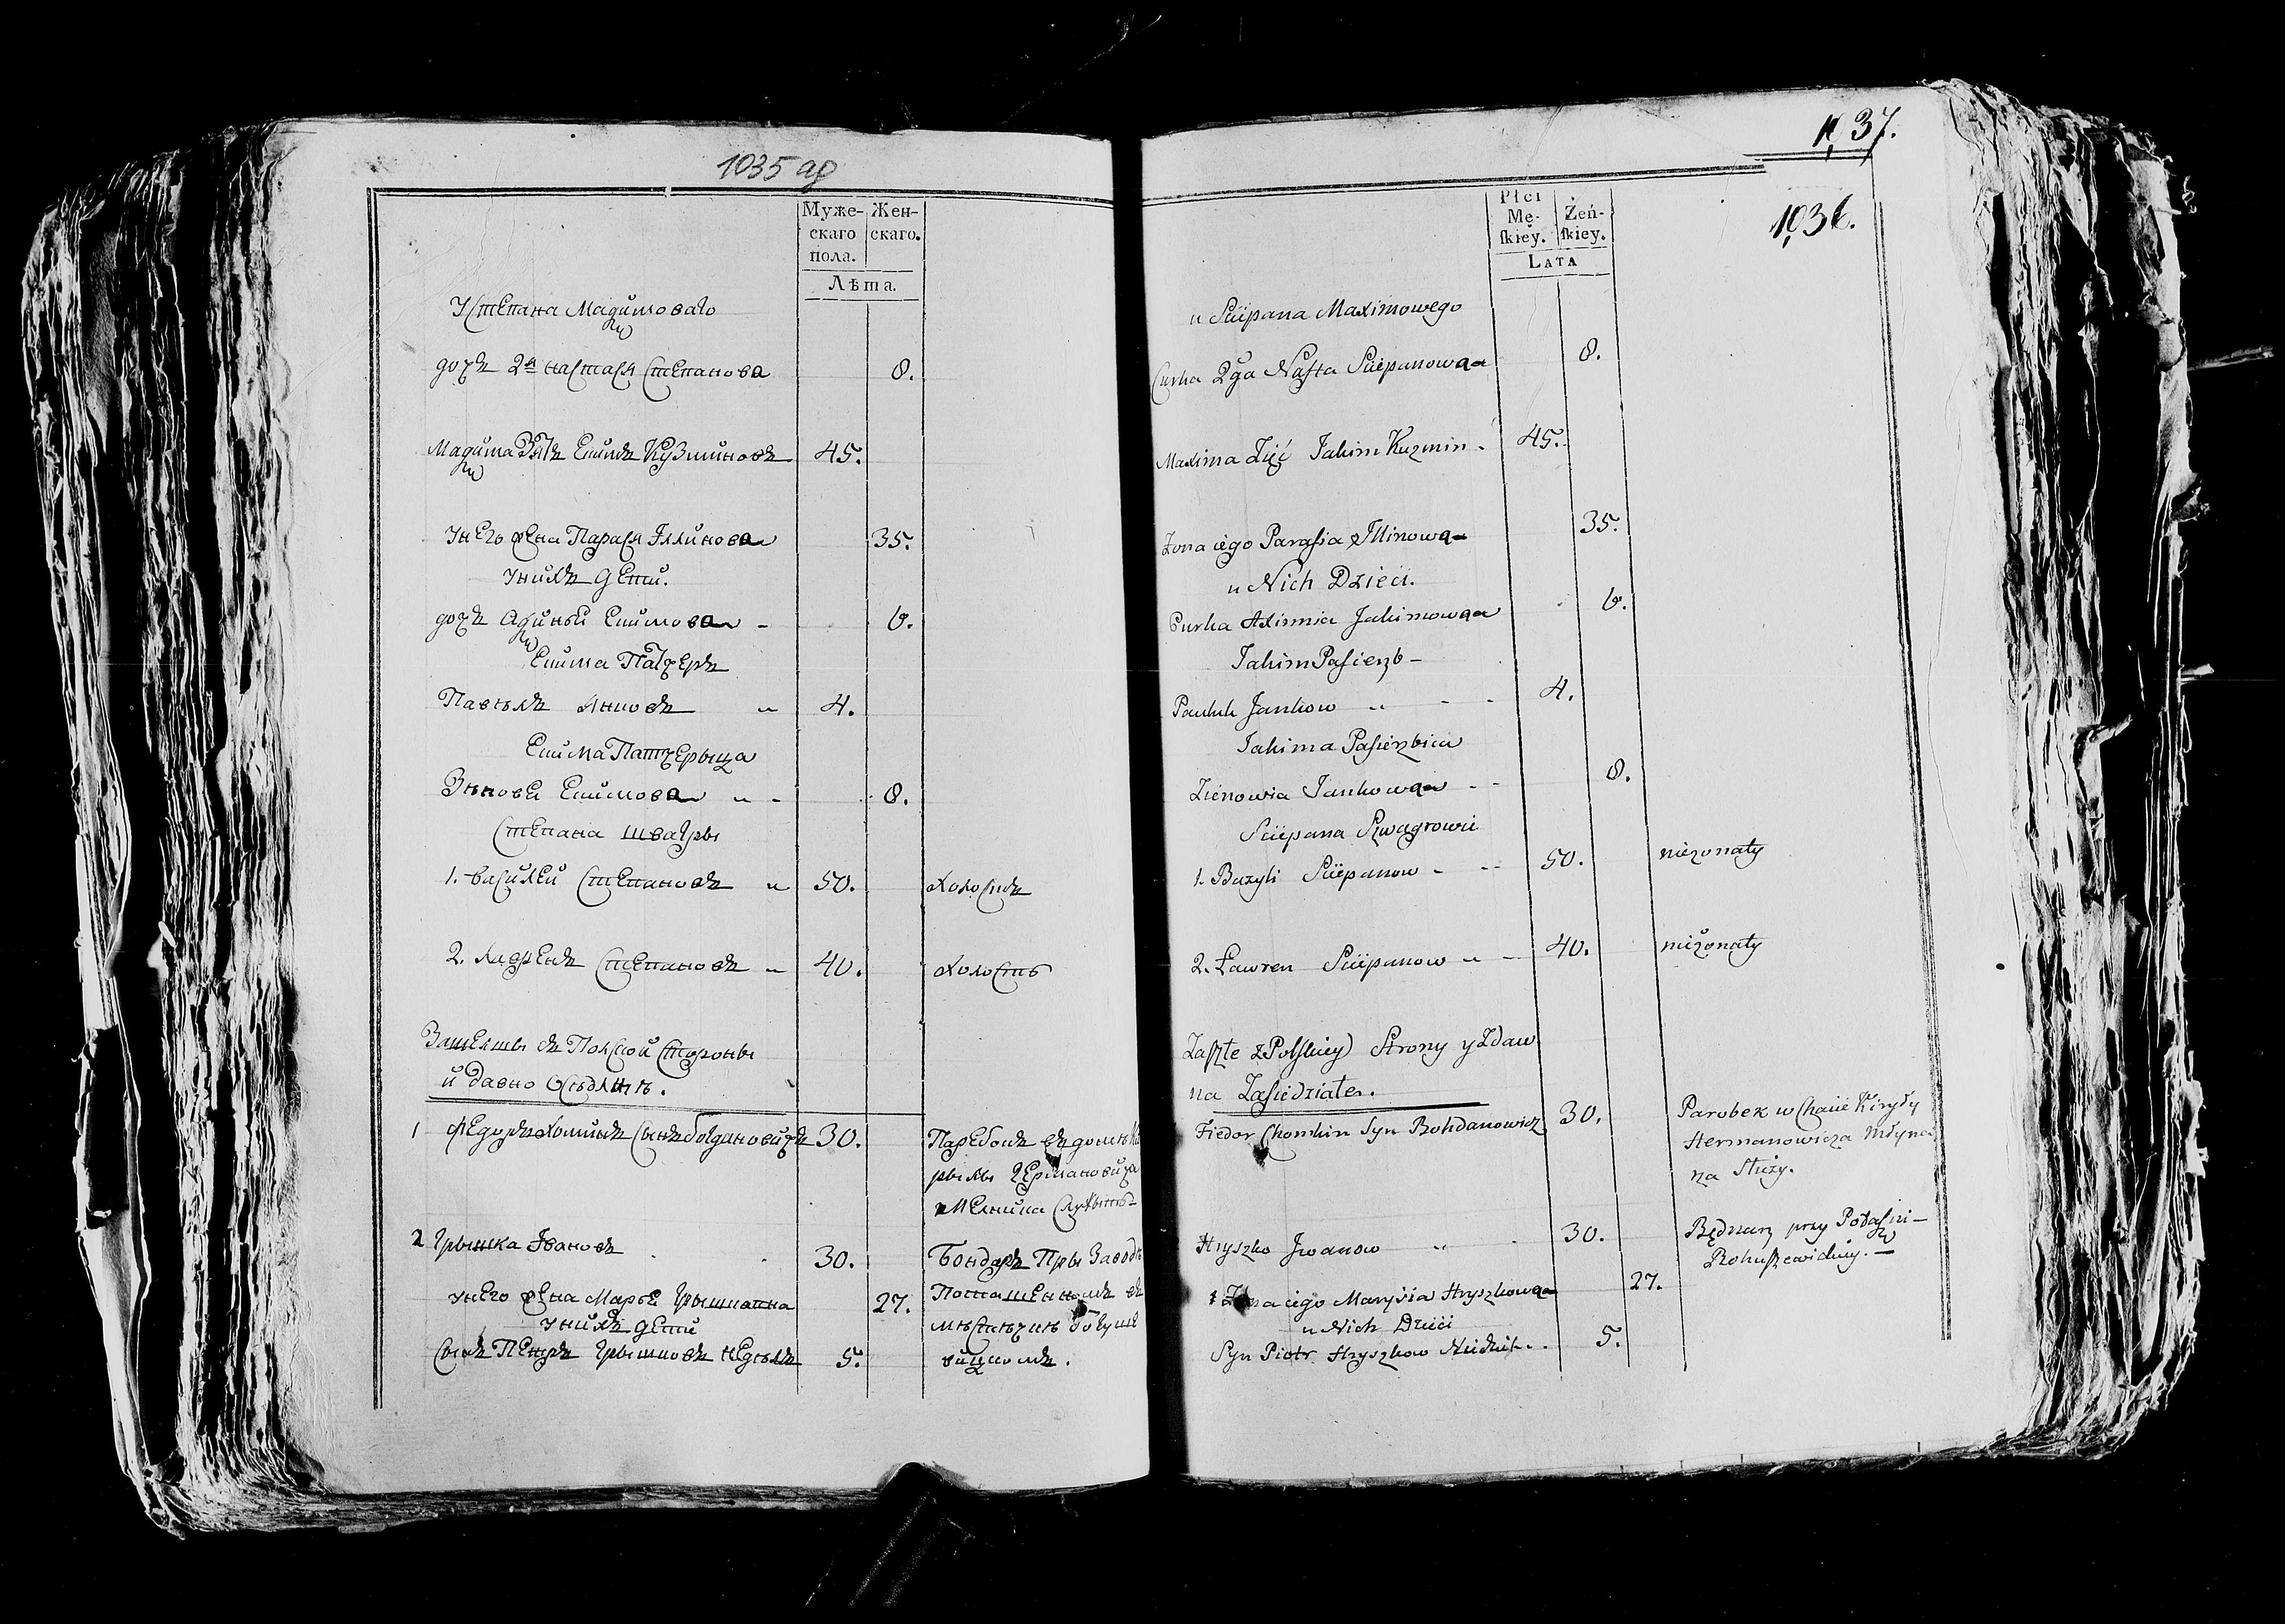 1035 аδ
Муже-
скаго
пола.
Жен-
скаго.
Лѣта.
У Степана Максимоваго
дочь 2я Настася Степанова 8.
Максима Зять Екимъ Кузминовъ 45.
у него жена Парася Іллинова 35.
у нихъ дети.
дочь Аксинья Екимова - 6.
Екима Патчеръ
Павелъ Янковъ 4.
Екима Патчерыца
Зѣновея Екимова 8.
Степана швагры
1. Василей Степановъ 50. Холостъ
2. Лавренъ Степановъ 40. Холостъ
Зашелшы съ Полской стороны
и давно оселилъ.
1 Федоръ Хоминъ сынъ Богдановичъ 30. Паребокъ въ доме Ки
рылы Германовича
мелника служитъ
2 Грышка Івановъ 30. Бондаръ Пры Заводѣ
у него жена Марья Грышкина 27. Поташенномъ въ
у нихъ дети
сынъ Петръ Грышковъ 5. вицкомъ.
1037.
Płci
Mę-
skiey.
Żeń-
skiey.
Lata
1036.
u Sciepana Maximowego
Curka 2ga Nasta Sciepanowa 8.
Maxima Zięć Jakim Kuzmin - 45.
Zona iego Parasia Illinowa 35.
u Nich Dzieci.
Curka Aximia Jakimowa 6.
Jakim Pasierzb -
Pauluk Jankow 4.
Jakima Pasierzbica
Zienowia Jankowa - - 8.
Sciepana Szwagrowie
1. Bazyli Sciepanow - - 50. niezonaty
2. Ławren Sciepanow 40. niezonaty
Zaszłe z Polskiey Strony y Zdaw
na Zasiedziałe.
Fiedor Chomkin Syn Bohdanowicz 30. Parobek w Chacie Kiryły
Hermanowicza Młyna
na Służy.
Hryszko Jwanow 30. Będnarz przy Potaszni -
Bohuszewickiey. -
1 Zona iego Marysia Hryszkowa 27.
u Nich Dzieci
Syn Piotr Hryszkow 5.